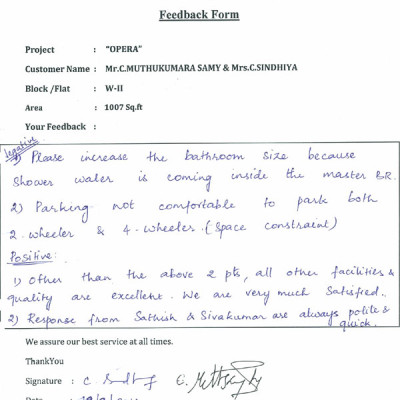 Feedback Form
Project : "OPERA"
Customer Name : Mr.C.MUTHUKUMARA SAMY & Mrs.C.SINDHIYA
Block /Flat : W-II
Area : 1007 Sq.ft
Your Feedback :
Negative:
1) Please increase the bathroom size because
Shower water is coming inside the master BR.
2) Parking not comfortable to park both
2-wheeler & 4-wheeler. (Space constraint)
Positive:
1) Other than the above 2 pts, all other facilities &
quality are excellent. We are very much Satisfied.
2) Response from Sathish & Sivakumar are always polite &
quick.
We assure our best service at all times.
ThankYou
Signature :